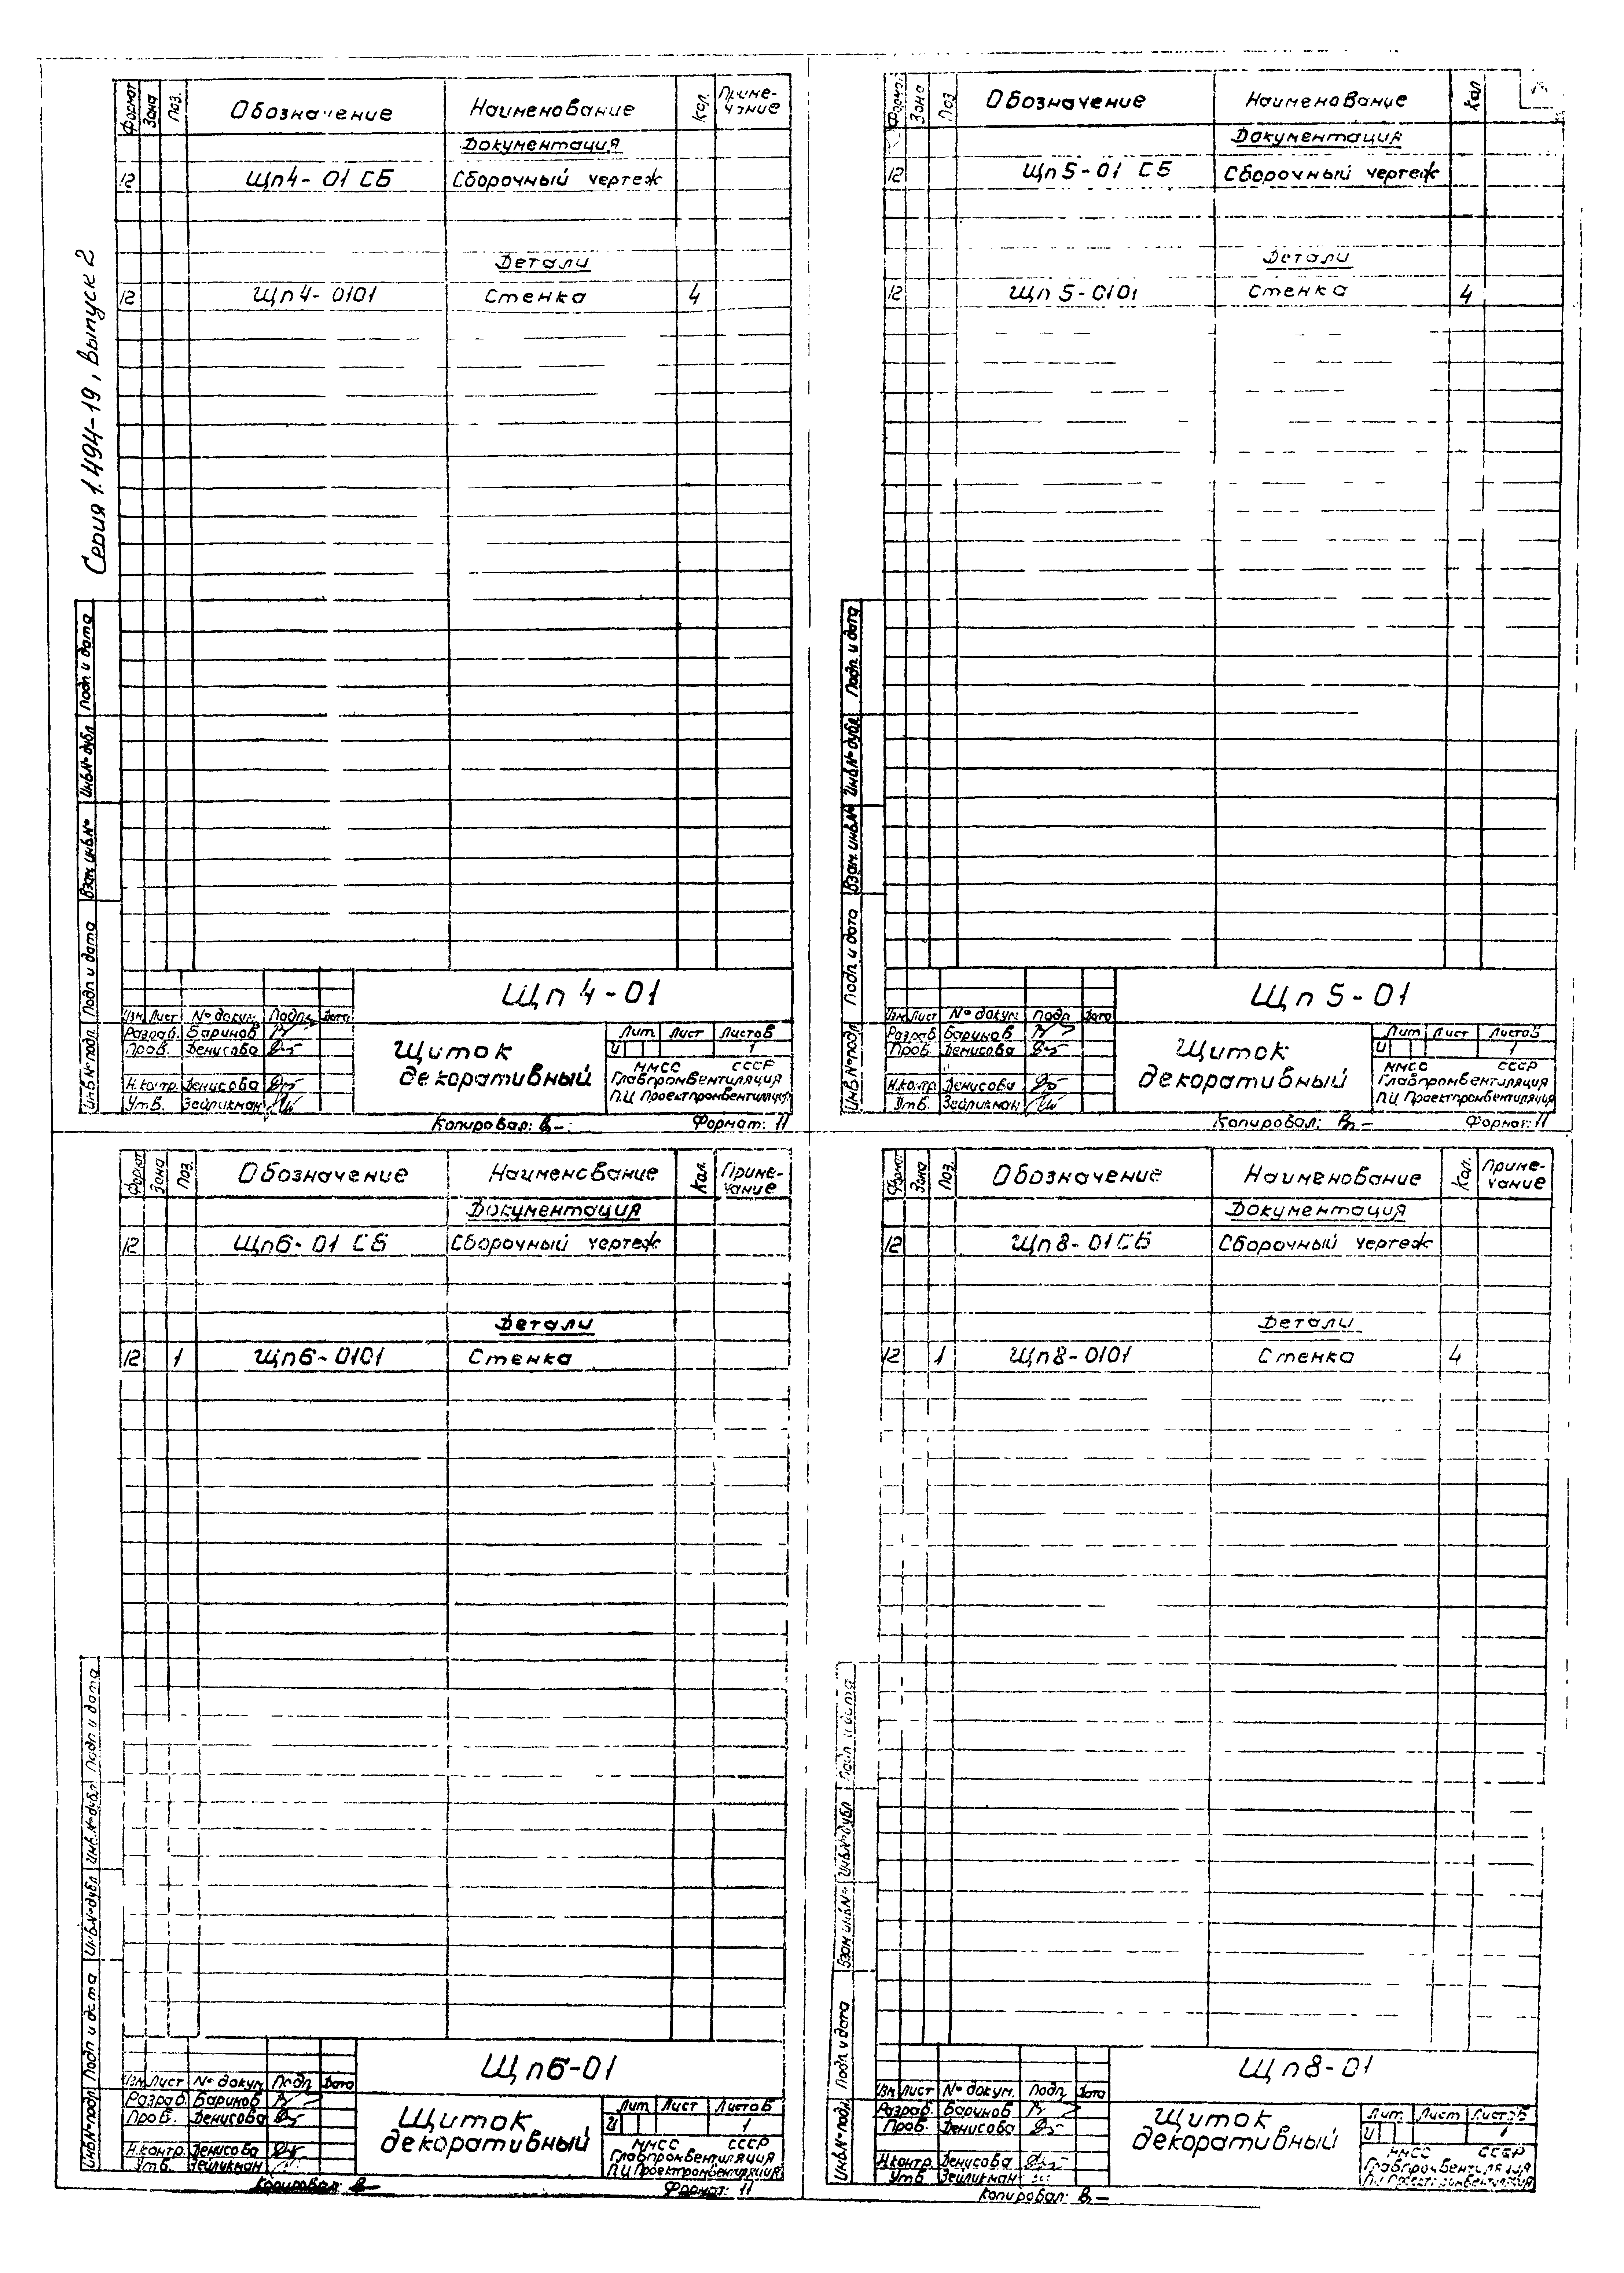 Серия 1.494-19, Выпуск 2
Формат Зона Поз. Обозначение Наименование Кол. Приме-
чание
Документация
12 Щп4-01 СБ Сборочный чертеж
Детали
12 Щп4-0101 Стенка 4
Подп. и дата
Инв.№ дубл
Взам. инв.№
Подп. и дата
Инв.№ подл.
Щп 4-01
Изм Лист № докум. Подп. Дата
Разраб. Баринов
Пров. Денисова
Н.контр. Денисова
Утв. Зейликман
Щиток
декоративный
Лит. Лист Листов
И 1
ММСС СССР
Главпромвентиляция
П.И. Проектпромвентиляция
Копировал: Формат: 11
Формат Зона Поз Обозначение Наименование Кол
Документация
12 Щп5-01 СБ Сборочный чертеж
Детали
12 Щп 5-0101 Стенка 4
Подп. и дата
Инв.№ дубл
Взам. инв.№
Подп. и дата
Инв.№ подл
Щп 5-01
Изм Лист № докум. Подп Дата
Разраб Баринов
Пров. Денисова
Н.контр. Денисова
Утв. Зейликман
Щиток
декоративный
Лит Лист Листов
И 1
ММСС СССР
Главпромвентиляция
П.И Проектпромвентиляция
Копировал: Формат: 11
Формат Зона Поз. Обозначение Наименование Кол. Приме-
чание
Документация
12 Щп6-01 СБ Сборочный чертеж
Детали
12 1 Щп6-0101 Стенка
Подп и дата
Инв.№ дубл
Инв.№ дубл
Подп и дата
Инв.№ подл
Щп6-01
Изм Лист № докум Подп Дата
Разраб. Баринов
Пров. Денисова
Н.контр. Денисова
Утв. Зейликман
Щиток
декоративный
Лит Лист Листов
И 1
ММСС СССР
Главпромвентиляция
П.И Проектпромвентиляция
Копировал: Формат: 11
Формат Зона Поз. Обозначение Наименование Кол. Приме-
чание
Документация
12 Щп8-01 СБ Сборочный чертеж
Детали
12 1 Щп8-0101 Стенка 4
Подп и дата
Инв.№ дубл
Взам инв.№
Подп. и дата
Инв.№ подл.
Щп8-01
Изм Лист № докум. Подп. Дата
Разраб. Баринов
Пров. Денисова
Н.контр. Денисова
Утв Зейликман
Щиток
декоративный
Лит. Лист Листов
И 1
ММСС СССР
Главпромвентиляция
П.И Проектпромвентиляция
Копировал: